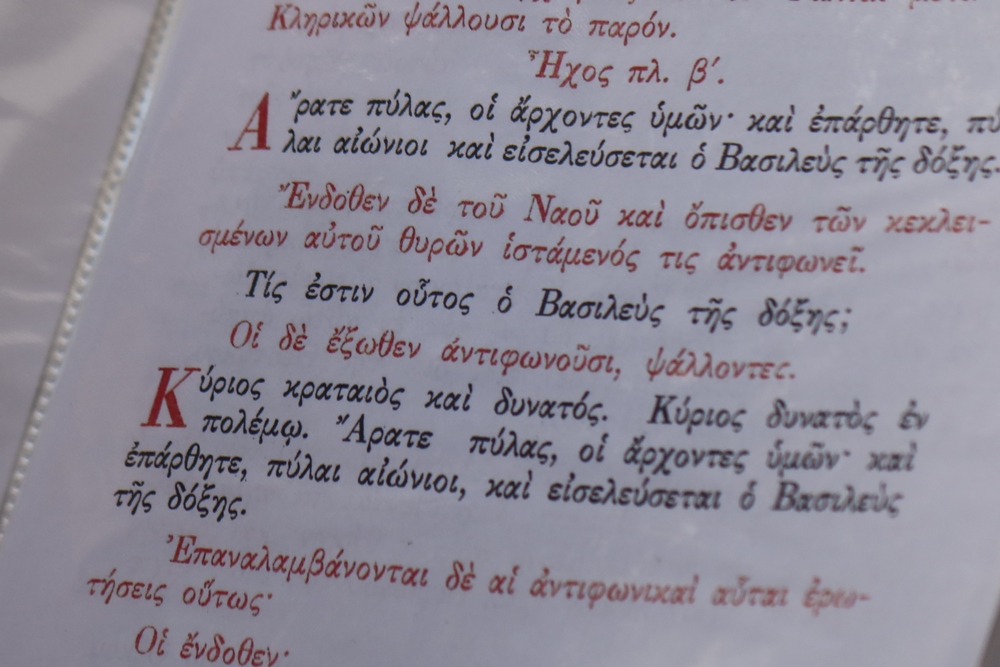 Κληρικῶν ψάλλουσι τὸ παρόν.
Ἦχος πλ. β′.
Ἄρατε πύλας, οἱ ἄρχοντες ὑμῶν· καὶ ἐπάρθητε, πύ
λαι αἰώνιοι καὶ εἰσελεύσεται ὁ Βασιλεὺς τῆς δόξης.
Ἔνδοθεν δὲ τοῦ Ναοῦ καὶ ὄπισθεν τῶν κεκλει-
σμένων αὐτοῦ θυρῶν ἱστάμενός τις ἀντιφωνεῖ.
Τίς ἐστιν οὗτος ὁ Βασιλεὺς τῆς δόξης;
Οἱ δὲ ἔξωθεν ἀντιφωνοῦσι, ψάλλοντες.
Κύριος κραταιὸς καὶ δυνατός. Κύριος δυνατὸς ἐν
πολέμῳ. Ἄρατε πύλας, οἱ ἄρχοντες ὑμῶν· καὶ
ἐπάρθητε, πύλαι αἰώνιοι, καὶ εἰσελεύσεται ὁ Βασιλεὺς
τῆς δόξης.
Ἐπαναλαμβάνονται δὲ αἱ ἀντιφωνικαὶ αὗται ἐρω-
τήσεις οὕτως·
Οἱ ἔνδοθεν·